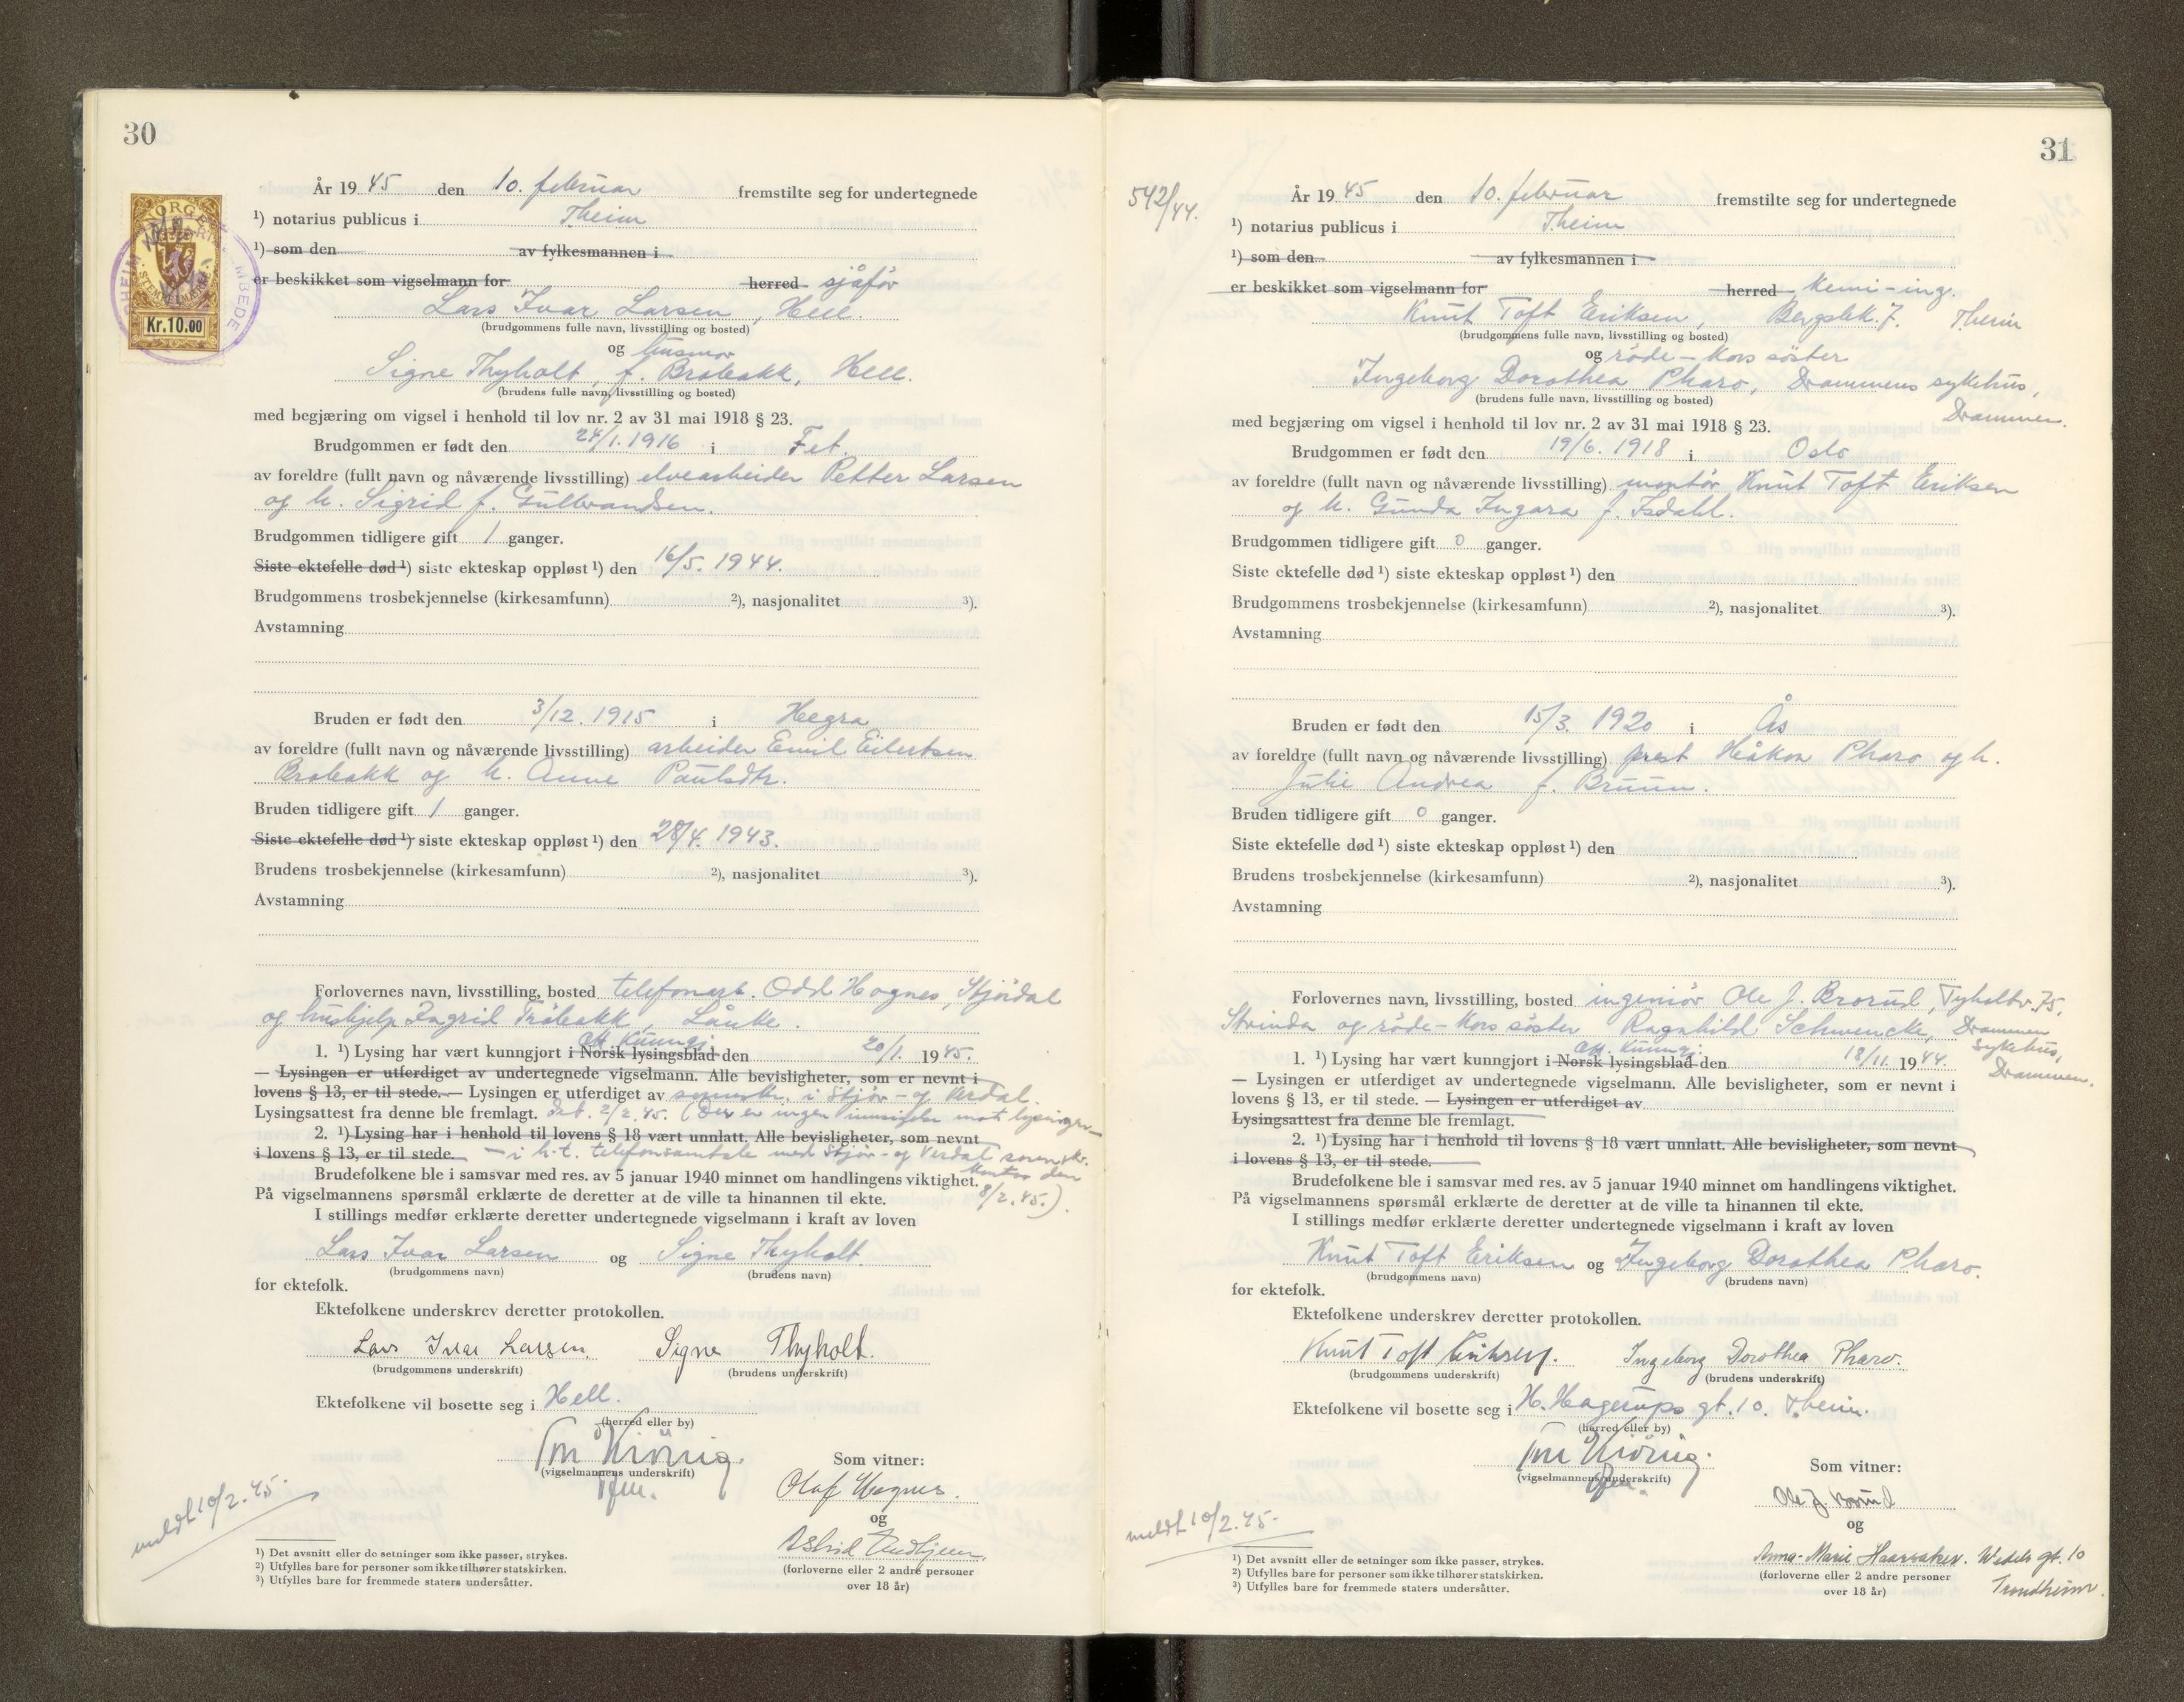 30
År 19 45 den 10. februar fremstilte seg for undertegnede
¹) notarius publicus i T.heim
¹) som den av fylkesmannen i
er beskikket som vigselmann for herred sjåfør
Lars Ivar Larsen, Hell.
(brudgommens fulle navn, livsstilling og bosted)
og husmor
Signe Thyholt, f. Brobakk, Hell.
(brudens fulle navn, livsstilling og bosted)
med begjæring om vigsel i henhold til lov nr. 2 av 31 mai 1918 § 23.
Brudgommen er født den 24/1. 1916 i Fet.
av foreldre (fullt navn og nåværende livsstilling) elvearbeider Petter Larsen
og h. Sigrid f. Gulbrandsen.
Brudgommen tidligere gift 1 ganger.
Siste ektefelle død ¹) siste ekteskap oppløst ¹) den 16/5. 1944.
Brudgommens trosbekjennelse (kirkesamfunn) ²), nasjonalitet ³).
Avstamning
Bruden er født den 3/12. 1915 i Hegra
av foreldre (fullt navn og nåværende livsstilling) arbeider Emil Eilertsen
Brobakk og h. Anne Paulsdtr.
Bruden tidligere gift 1 ganger.
Siste ektefelle død ¹) siste ekteskap oppløst ¹) den 28/4. 1943.
Brudens trosbekjennelse (kirkesamfunn) ²), nasjonalitet ³).
Avstamning
Forlovernes navn, livsstilling, bosted telefonarb. Odd Hognes, Stjørdal
og hushjelp Ingrid Tråbakk, Lånke.
off. kunngj.
1. ¹) Lysing har vært kunngjort i Norsk lysingsblad den 20/1. 1945.
— Lysingen er utferdiget av undertegnede vigselmann. Alle bevisligheter, som er nevnt i
lovens § 13, er til stede. — Lysingen er utferdiget av sorenskr. i Stjør- og Verdal.
Lysingsattest fra denne ble fremlagt. Dat. 2/2. 45. (Der er ingen innsigelse mot lysingen
2. ¹) Lysing har i henhold til lovens § 18 vært unnlatt. Alle bevisligheter, som nevnt
i lovens § 13, er til stede. — i h.t. telefonsamtale med Stjør- og Verdal sorenskr.
kontor den
Brudefolkene ble i samsvar med res. av 5 januar 1940 minnet om handlingens viktighet.
På vigselmannens spørsmål erklærte de deretter at de ville ta hinannen til ekte. 8/2. 45.).
I stillings medfør erklærte deretter undertegnede vigselmann i kraft av loven
Lars Ivar Larsen og Signe Thyholt
(brudgommens navn) (brudens navn)
for ektefolk.
Ektefolkene underskrev deretter protokollen.
Lars Ivar Larsen. Signe Thyholt.
(brudgommens underskrift) (brudens underskrift)
Ektefolkene vil bosette seg i Hell.
(herred eller by)
(vigselmannens underskrift)
Som vitner:
Olaf Hognes.
og
Astrid
(forloverne eller 2 andre personer
over 18 år)
meldt 10/2. 45.
¹) Det avsnitt eller de setninger som ikke passer, strykes.
²) Utfylles bare for personer som ikke tilhører statskirken.
³) Utfylles bare for fremmede staters undersåtter.
NORGE
STEMPELMERKE
Kr.10.00
31
542/44.
År 19 45 den 10. februar fremstilte seg for undertegnede
¹) notarius publicus i T.heim
¹) som den av fylkesmannen i
er beskikket som vigselmann for herred kemi-ing.
Knut Toft Eriksen, Bergslik. 7. T.heim
(brudgommens fulle navn, livsstilling og bosted)
og røde-kors søster
Ingeborg Dorothea Pharo, Drammens sykehus,
Drammen.
(brudens fulle navn, livsstilling og bosted)
med begjæring om vigsel i henhold til lov nr. 2 av 31 mai 1918 § 23.
Brudgommen er født den 19/6. 1918 i Oslo
av foreldre (fullt navn og nåværende livsstilling) montør Knut Toft Eriksen
og h. Gunda Ingara f. Isdahl.
Brudgommen tidligere gift 0 ganger.
Siste ektefelle død ¹) siste ekteskap oppløst ¹) den
Brudgommens trosbekjennelse (kirkesamfunn) ²), nasjonalitet ³).
Avstamning
Bruden er født den 15/3. 1920 i Ås
av foreldre (fullt navn og nåværende livsstilling) prest Håkon Pharo og h.
Julie Andrea f. Bruun.
Bruden tidligere gift 0 ganger.
Siste ektefelle død ¹) siste ekteskap oppløst ¹) den
Brudens trosbekjennelse (kirkesamfunn) ²), nasjonalitet ³).
Avstamning
Forlovernes navn, livsstilling, bosted ingeniør Ole J. Brorud, Tyholtv. 75,
Strinda og røde-kors søster Ragnhild Schwencke, Drammen
sykehus,
Drammen.
off. kunngj.
1. ¹) Lysing har vært kunngjort i Norsk lysingsblad den 18/11. 1944.
— Lysingen er utferdiget av undertegnede vigselmann. Alle bevisligheter, som er nevnt i
lovens § 13, er til stede. — Lysingen er utferdiget av
Lysingsattest fra denne ble fremlagt.
2. ¹) Lysing har i henhold til lovens § 18 vært unnlatt. Alle bevisligheter, som nevnt
i lovens § 13, er til stede.
Brudefolkene ble i samsvar med res. av 5 januar 1940 minnet om handlingens viktighet.
På vigselmannens spørsmål erklærte de deretter at de ville ta hinannen til ekte.
I stillings medfør erklærte deretter undertegnede vigselmann i kraft av loven
Knut Toft Eriksen og Ingeborg Dorothea Pharo.
(brudgommens navn) (brudens navn)
for ektefolk.
Ektefolkene underskrev deretter protokollen.
Knut Toft Eriksen. Ingeborg Dorothea Pharo.
(brudgommens underskrift) (brudens underskrift)
Ektefolkene vil bosette seg i H. Hagerups gt. 10. T.heim.
(herred eller by)
(vigselmannens underskrift)
Som vitner:
Ole J. Brorud
og
Anna-Marie Haarsaker. Wedels gt. 10
Trondheim.
(forloverne eller 2 andre personer
over 18 år)
meldt 10/2. 45.
¹) Det avsnitt eller de setninger som ikke passer, strykes.
²) Utfylles bare for personer som ikke tilhører statskirken.
³) Utfylles bare for fremmede staters undersåtter.